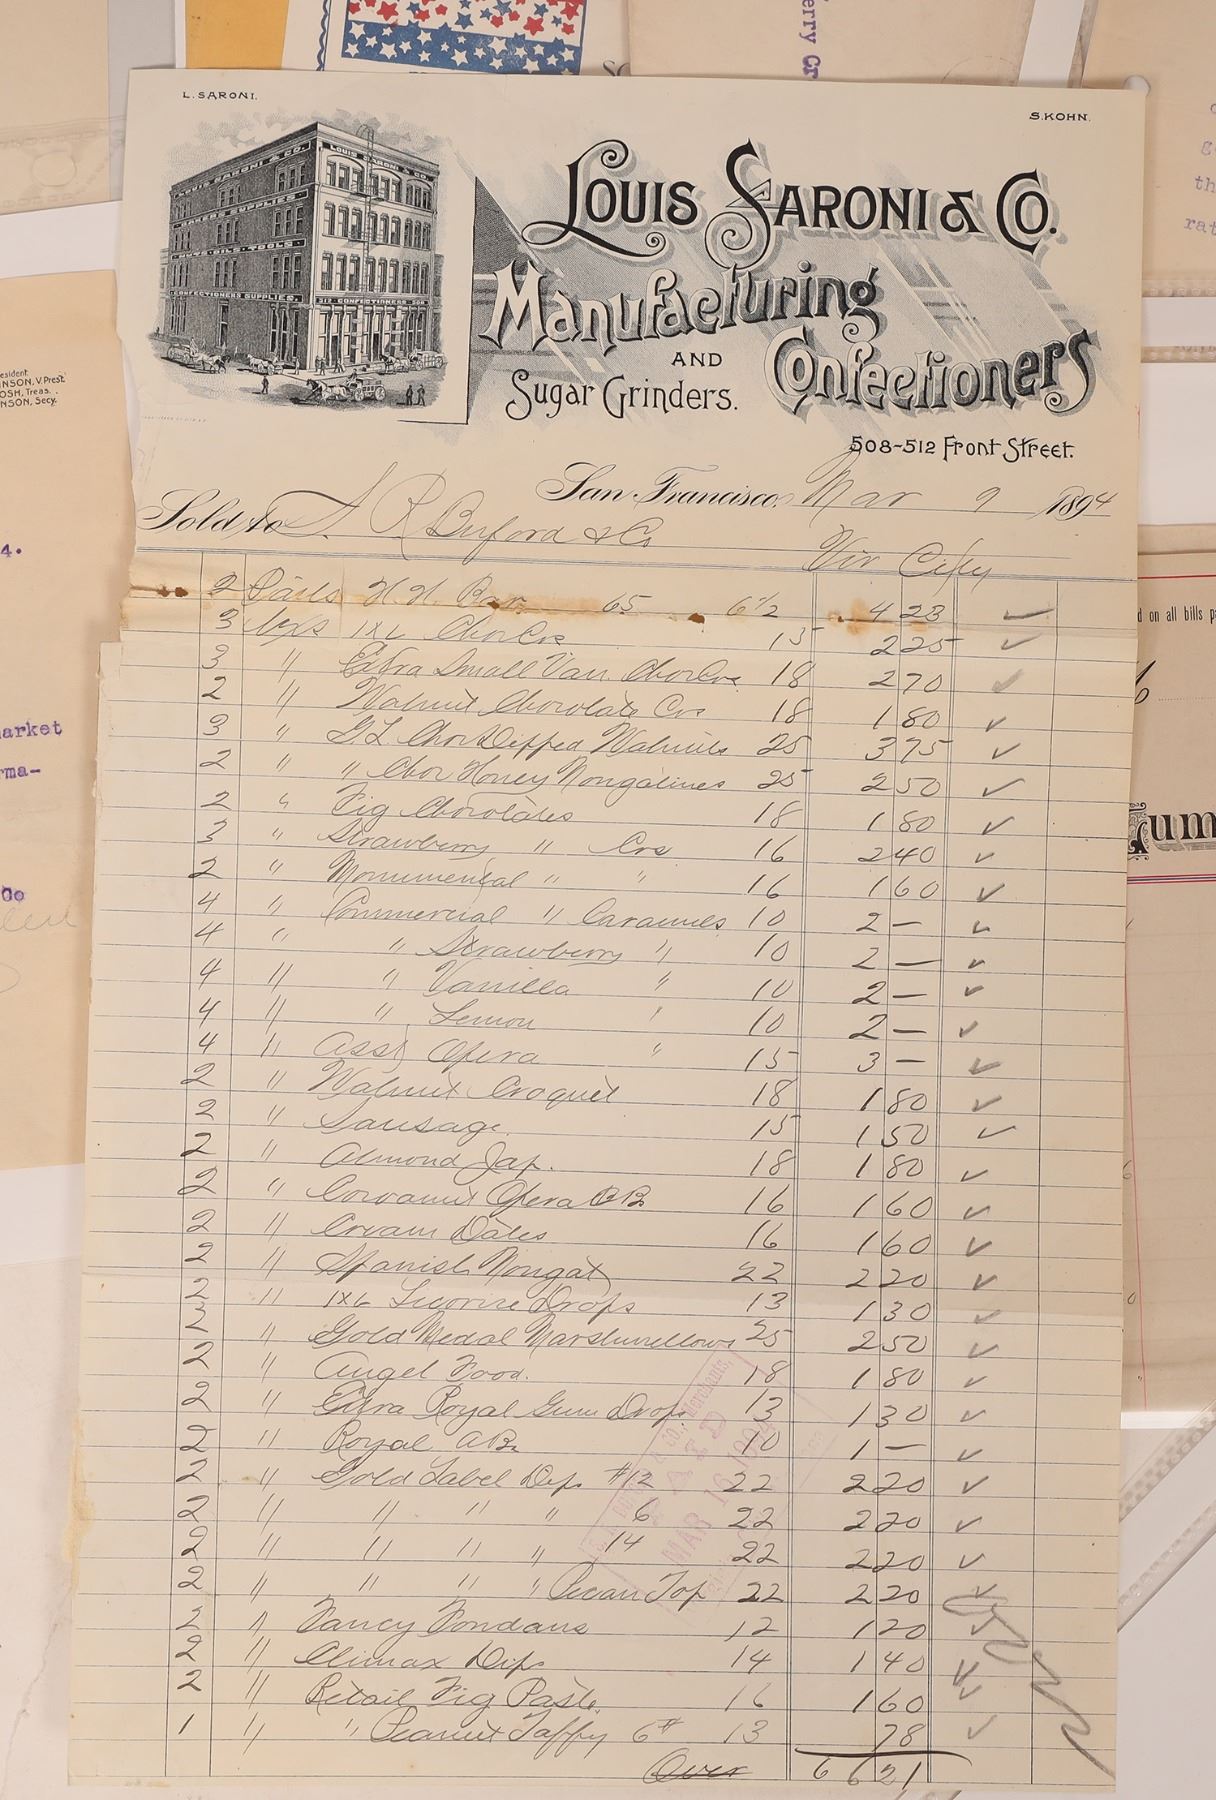 L. SARONI.
S. KOHN.
LOUIS SARONI & CO.
CONFECTIONERS SUPPLIES.
512 CONFECTIONERS 508
LOUIS SARONI & CO.
Manufacturing
AND
Confectioners
Sugar Grinders.
508-512 Front Street.
San Francisco, Mar 9 1894
Sold to A. R. Buford & Co
Vir City
2 Pails H. H. Bar 65 6 1/2 4 23
3 Bxs 1X6 Choc Crs 15 2 25
3 " Extra Small Van. Choc Crs 18 2 70
2 " Walnut Chocolate Crs 18 1 80
3 " G. L. Choc Dipped Walnuts 25 3 75
2 " " Choc Honey Nougatines 25 2 50
2 " Fig Chocolates 18 1 80
3 " Strawberry " Crs 16 2 40
2 " Monumental " " 16 1 60
4 " Commercial " Caramels 10 2 —
4 " " Strawberry " 10 2 —
4 " " Vanilla " 10 2 —
4 " " Lemon " 10 2 —
4 " Asst Opera " 15 3 —
2 " Walnut Croquet 18 1 80
2 " Sausage 15 1 50
2 " Almond Jap. 18 1 80
2 " Cocoanut Opera BB 16 1 60
2 " Cream Dates 16 1 60
2 " Spanish Nougat 22 2 20
2 " 1X6 Licorice Drops 13 1 30
2 " Gold Medal Marshmellows 25 2 50
2 " Angel Food. 18 1 80
2 " Extra Royal Gum Drops 13 1 30
2 " Royal AB 10 1 —
2 " Gold Label Dips #12 22 2 20
2 " " " " 6 22 2 20
2 " " " " 14 22 2 20
2 " " " " Pecan Top 22 2 20
2 " Fancy Fondans 12 1 20
2 " Climax Dips 14 1 40
2 " Retail Fig Paste 16 1 60
1 " " Peanut Taffy 6# 13 78
Over 6 6 21
PAID
MAR 16
Merchants,
NSON, V. Prest.
OSH, Treas.
NSON, Secy.
4.
arket
rma-
Co
d on all bills pa
um
erry Gr
th
rat